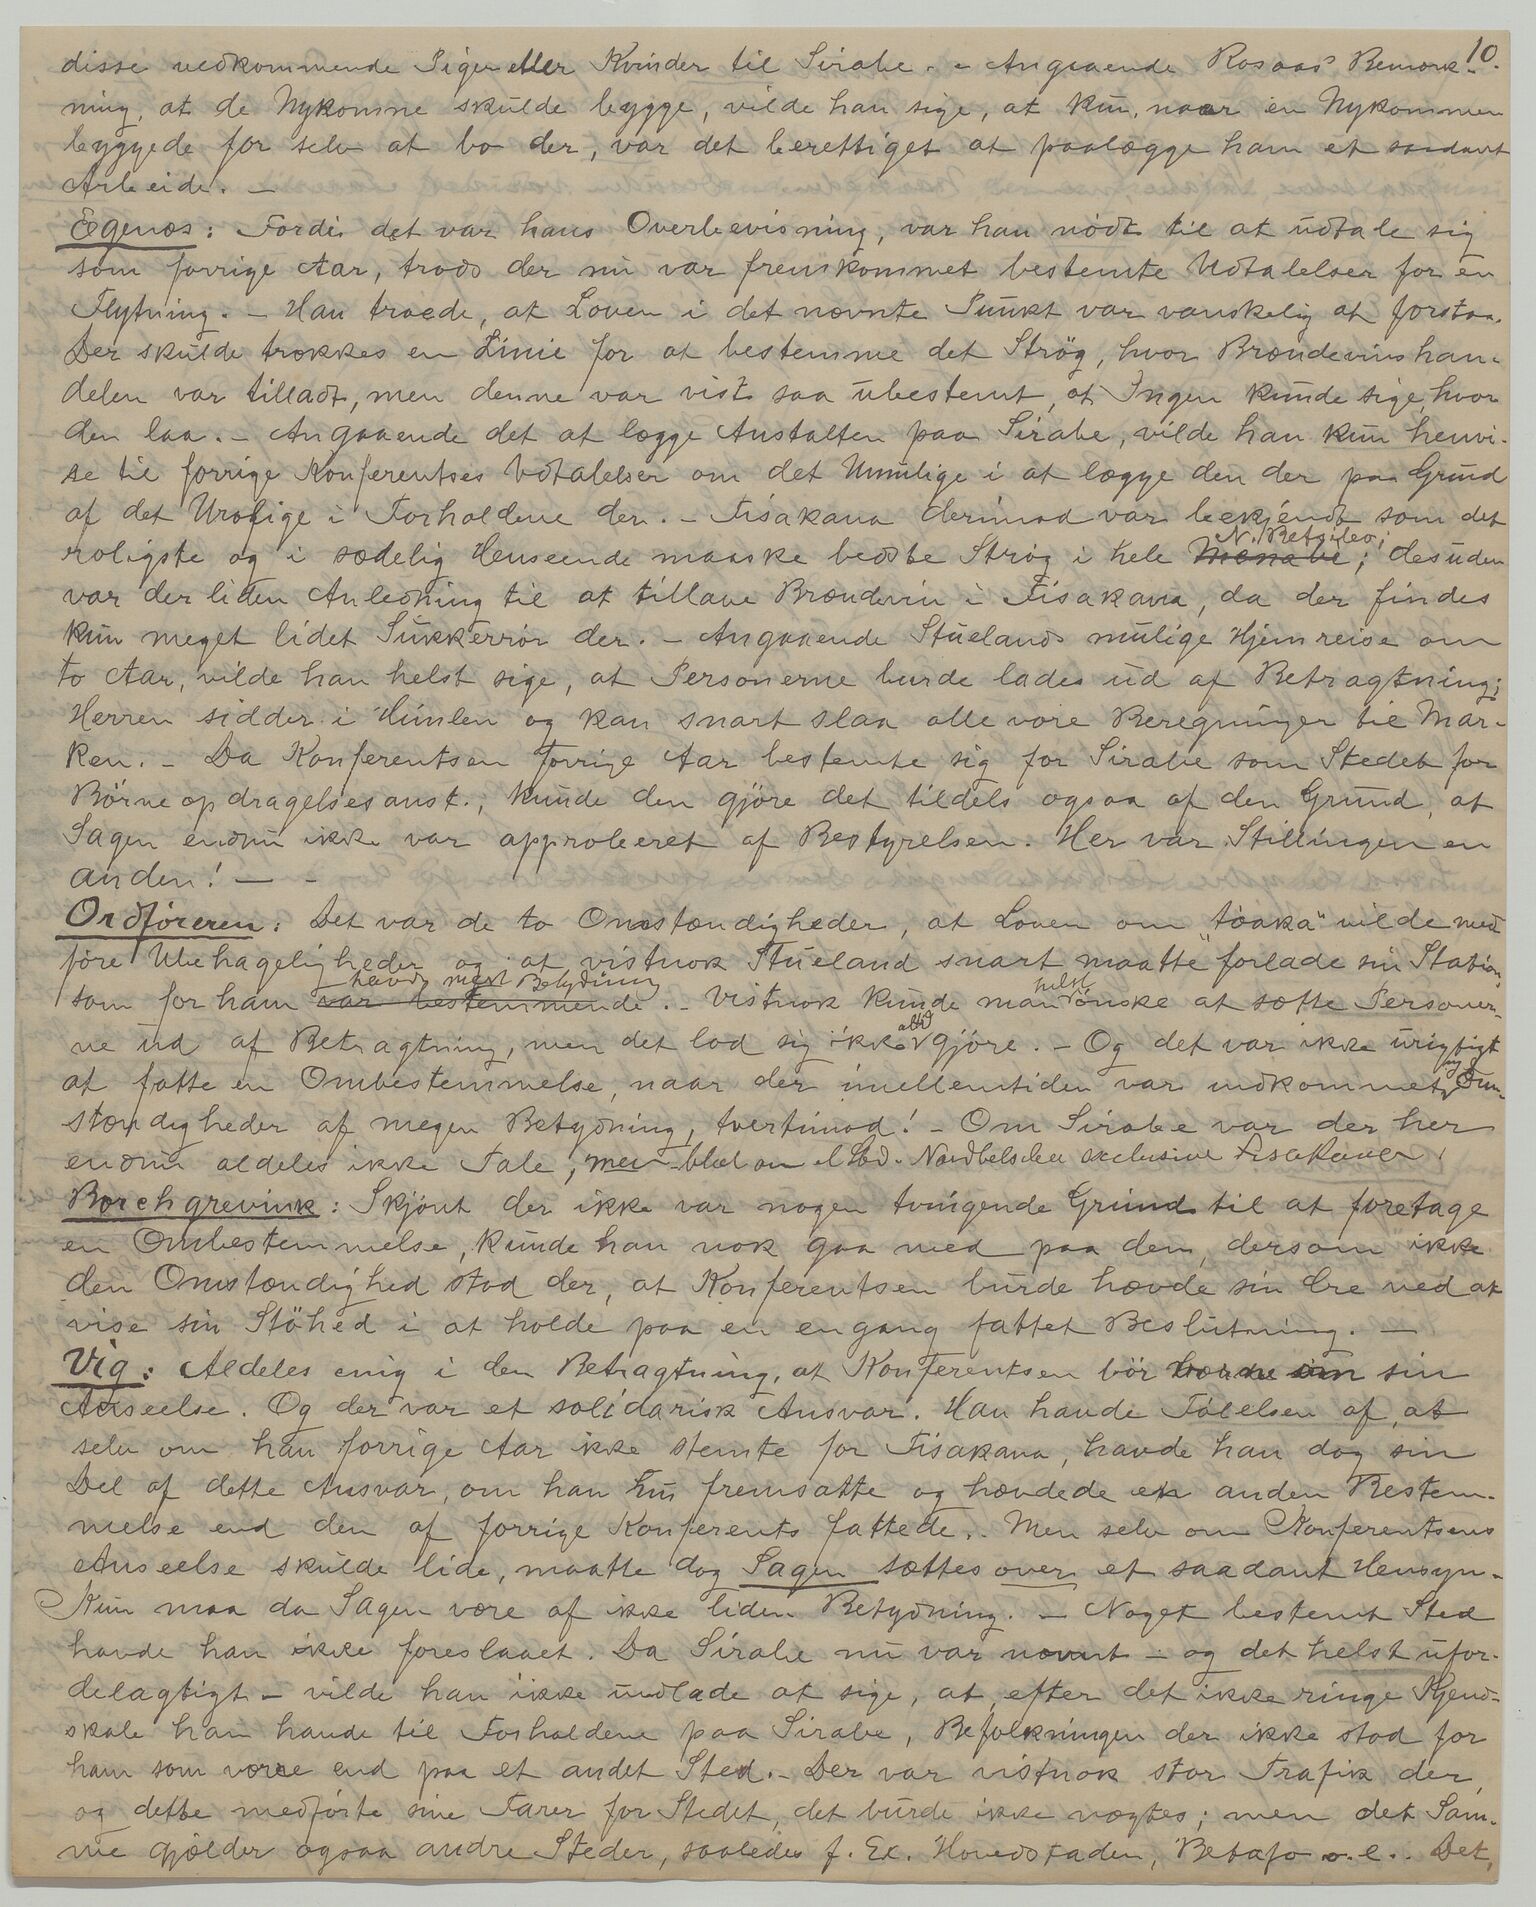 10.
disse vedkommende Piger eller Kvinder til Sirabe. - Angaaende Rosaas' Bemærk-
ning, at de Nykomne skulde bygge, vilde han sige, at kun, naar en Nykommen
byggede for selv at bo der, var det berettiget at paalægge ham et saadant
Arbeide. -
Egenæs: Fordi det var hans Overbevisning, var han nødt til at udtale sig
som forrige Aar, trods der nu var fremkommet bestemte Udtalelser for en
Flytning. - Han troede, at Loven i det nævnte Punkt var vanskelig at forstaa.
Der skulde trækkes en Linie for at bestemme det Strøg, hvor Brændevinshan-
delen var tilladt, men denne var vist saa ubestemt, at Ingen kunde sige, hvor
den laa. - Angaaende det at lægge Anstalten paa Sirabe, vilde han kun henvi-
se til forrige Konferentses Udtalelser om det Umulige i at lægge den der paa Grund
af det Urolige i Forholdene der. - Fisakana derimod var bekjendt som det
roligste og i sædelig Henseende maaske bedste Strøg i hele Menabe N. Betsileo; desuden
var der liden Anledning til at tillave Brændevin i Fisakana, da der findes
kun meget lidet Sukkerrør der. - Angaaende Stuelands mulige Hjemreise om
to Aar, vilde han helst sige, at Personerne burde lades ud af Betragtning;
Herren sidder i Himlen og kan snart slaa alle vore Beregninger til Mar-
ken. - Da Konferentsen forrige Aar bestemte sig for Sirabe som Stedet for
Børneopdragelsesanst., kunde den gjøre det tildels ogsaa af den Grund, at
Sagen endnu ikke var approberet af Bestyrelsen. Her var Stillingen en
anden! - -
Ordføreren: Det var de to Omstændigheder, at Loven om "tóaka" vilde med
føre Ubehageligheder og at vistnok Stueland snart maatte forlade sin Station,
som for ham var bestemmende havde mest Betydning. - Vistnok kunde man helst ønske at sætte Personer-
ne ud af Betragtning, men det lod sig ikke altid gjøre. - Og det var ikke urigtigt
at fatte en Ombestemmelse, naar der imellemtiden var indkommet ny Om-
stændigheder af megen Betydning, tvertimod! - Om Sirabe var der her
endnu aldeles ikke Tale, men blot om Nordbetsileo exclusive Fisakana.
Borchgrevink: Skjønt der ikke var nogen tvingende Grund til at foretage
en Ombestemmelse, kunde han nok gaa med paa den, dersom ikke
den Omstændighed stod der, at Konferentsen burde hævde sin Ære ved at
vise sin Støhed i at holde paa en engang fattet Beslutning. -
Vig: Aldeles enig i den Betragtning, at Konferentsen bør sin
Anseelse. Og der var et solidarisk Ansvar. Han havde Følelsen af, at
selv om han forrige Aar ikke stemte for Fisakana, havde han dog sin
Del af dette Ansvar, om han fremsatte og hævdede en anden Bestem-
melse end den af forrige Konferents fattede. - Men selv om Konferentsens
Anseelse skulde lide, maatte dog Sagen sættes over et saadant Hensyn.
Kun maa da Sagen være af ikke liden Betydning. - Noget bestemt Sted
havde han ikke foreslaaet. Da Sirabe nu var nævnt - og det helst ufor-
delagtigt - vilde han ikke undlade at sige, at, efter det ikke ringe Kjend-
skab han havde til Forholdene paa Sirabe, Befolkningen der ikke stod for
ham som værre end paa et andet Sted. - Der var vistnok stor Trafik der,
og dette medførte sine Farer for Stedet, det burde ikke nægtes; men det Sam-
me gjælder ogsaa andre Steder, saaledes f. Ex. Hovedstaden, Betafo o.l.. Det,